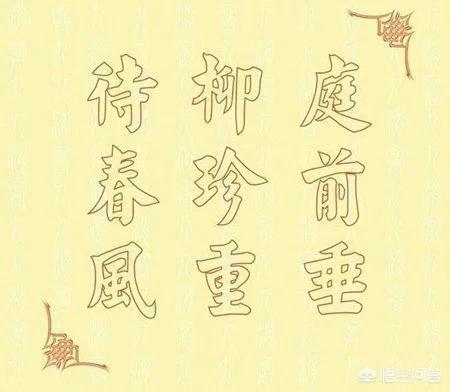 庭前垂
柳珍重
待春風
悟空问答